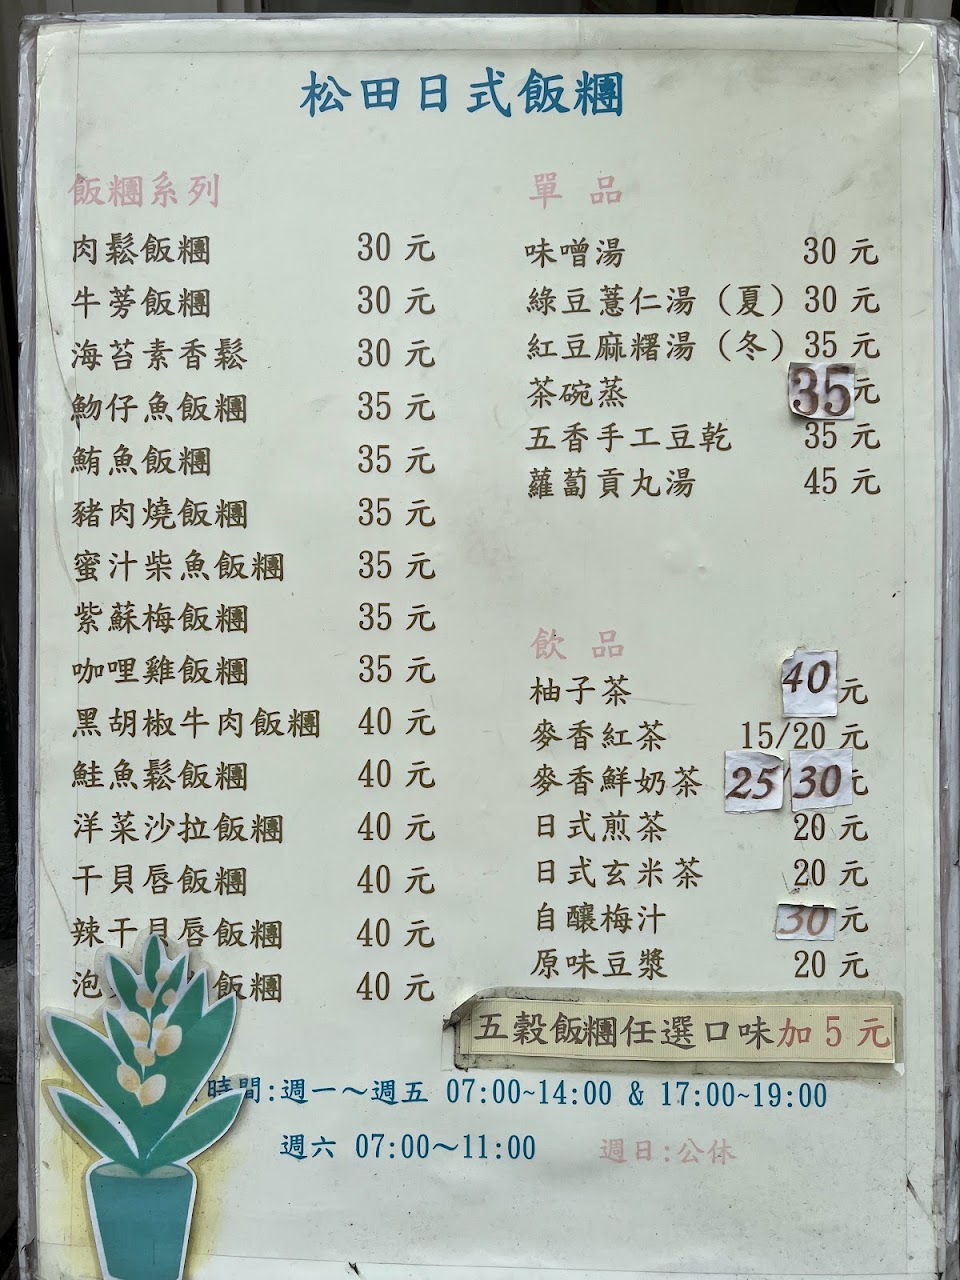 松田日式飯糰
飯糰系列
肉鬆飯糰 30 元
牛蒡飯糰 30 元
海苔素香鬆 30 元
魩仔魚飯糰 35 元
鮪魚飯糰 35 元
豬肉燒飯糰 35 元
蜜汁柴魚飯糰 35 元
紫蘇梅飯糰 35 元
咖哩雞飯糰 35 元
黑胡椒牛肉飯糰 40 元
鮭魚鬆飯糰 40 元
洋菜沙拉飯糰 40 元
干貝唇飯糰 40 元
辣干貝唇飯糰 40 元
泡 飯糰 40 元
單品
味噌湯 30 元
綠豆薏仁湯（夏）30 元
紅豆麻糬湯（冬）35 元
茶碗蒸 35元
五香手工豆乾 35 元
蘿蔔貢丸湯 45 元
飲品
柚子茶 40 元
麥香紅茶 15/20 元
麥香鮮奶茶 25/30元
日式煎茶 20 元
日式玄米茶 20 元
自釀梅汁 30 元
原味豆漿 20 元
五穀飯糰任選口味加 5 元
時間:週一～週五 07:00~14:00 & 17:00~19:00
週六 07:00～11:00 週日:公休